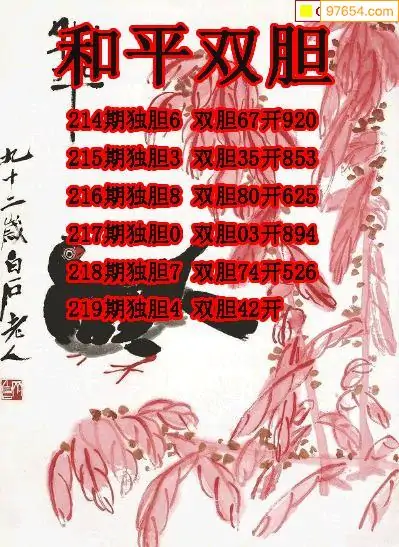 97654.com
和平双胆
214期独胆6 双胆67开920
215期独胆3 双胆35开853
216期独胆8 双胆80开625
217期独胆0 双胆03开894
218期独胆7 双胆74开526
219期独胆4 双胆42开
九十二岁白石老人